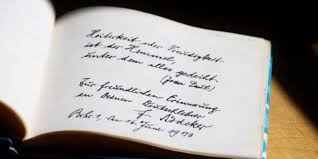 Heiterkeit oder Freudigkeit
ist der Himmel,
unter dem alles gedeiht.
(Jean Paul)
Zur freundlichen Erinnerung
an Deinen Deutschlehrer
F. Rädeker
den 10. Juni 1973